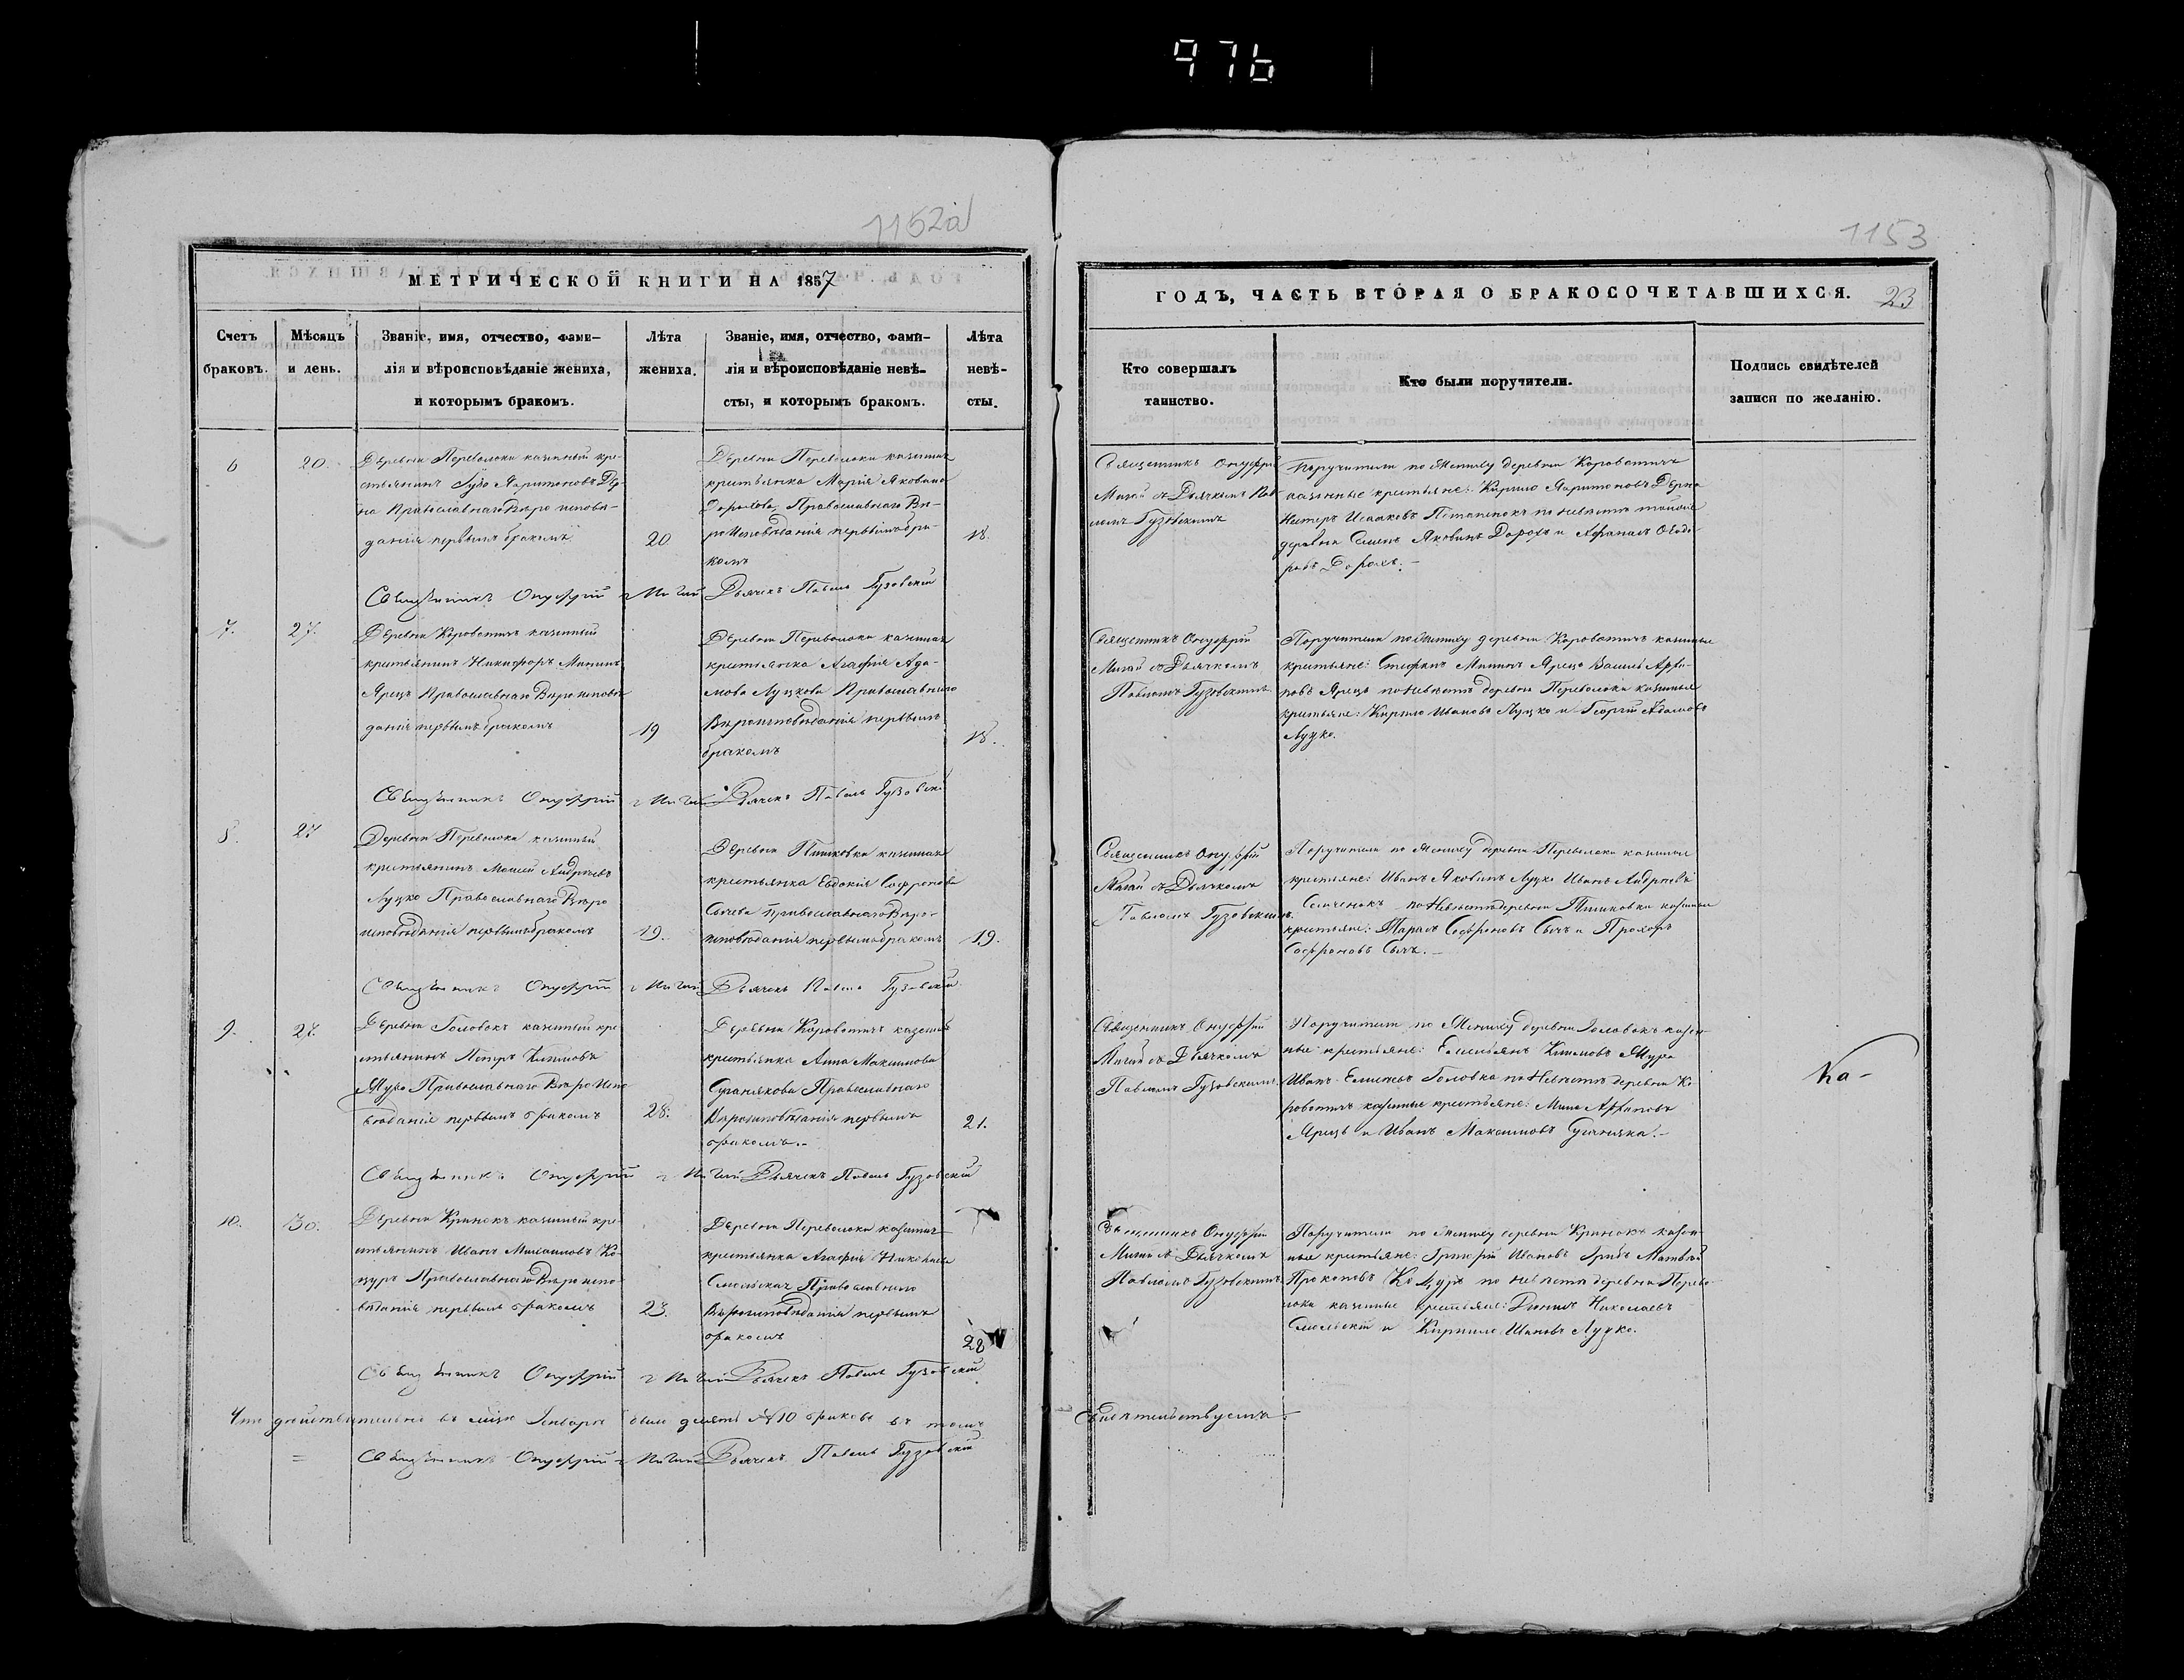 976
1152об
МЕТРИЧЕСКОЙ КНИГИ НА 1857
Счетъ браковъ.
Мѣсяцъ и день.
Званіе, имя, отчество, фами-
лія и вѣроисповѣданіе жениха,
и которымъ бракомъ.
Лѣта жениха.
Званіе, имя, отчество, фами-
лія и вѣроисповѣданіе невѣ-
сты, и которымъ бракомъ.
Лѣта невѣ-
сты.
6
20.
Деревни Переволоки казенный кре-
стьянинъ Харитоновъ
Православнаго Вѣро исповѣ-
данія первымъ бракомъ
20
Деревни Переволоки казенная
крестьянка Марія Яковова
Дорохова, Православнаго Вѣ-
роисповѣданія первымъ бра-
комъ
18.
Священникъ Онуфрій Мигай Дьячекъ Павелъ Гузовскій
7.
27.
Деревни Короватичъ казенный
крестьянинъ Никифоръ Мининъ
Ярецъ Православнаго Вѣроисповѣ
данія первымъ бракомъ
19
Деревни Переволоки казенная
крестьянка Агафія Ада-
мова Луцкова Православнаго
Вѣроисповѣданія первымъ
бракомъ
18.
Священникъ Онуфрій Мигай Дьячекъ Павелъ Гузовскій
8.
27
Деревни Переволоки казенный
крестьянинъ Моисей Андреевъ
Луцко Православнаго Вѣро
исповѣданія первымъ бракомъ
19.
Деревни Тишковки казенная
крестьянка Евдокія Софронова
Сычева Православнаго Вѣро-
исповѣданія первымъ бракомъ
19.
Священникъ Онуфрій Мигай Дьячекъ Павелъ Гузовскій
9.
27.
Деревни Головокъ казенный кре
стьянинъ Петръ Климовъ
Православнаго Вѣроиспо
вѣданія первымъ бракомъ
28.
Деревни Короватичъ казенная
крестьянка Анна Максимова
Суганякова Православнаго
Вѣроисповѣданія первымъ
бракомъ.-
21.
Священникъ Онуфрій Мигай Дьячекъ Павелъ Гузовскій
10.
30.
Деревни Кринокъ казенный кре
стьянинъ Иванъ Михаиловъ Ко-
цуръ Православнаго Вѣроиспо-
вѣданія первымъ бракомъ
23.
Деревни Переволоки казенная
крестьянка Агафія Николаева
Смольская Православнаго
Вѣроисповѣданія первымъ
бракомъ
28
Священникъ Онуфрій Мигай Дьячекъ Павелъ Гузовскій
Что дѣйствительно въ Январѣ было 10 браковъ въ томъ
Священникъ Онуфрій Мигай Дьячекъ Павелъ Гузовскій
1153
ГОДЪ, ЧАСТЬ ВТОРАЯ О БРАКОСОЧЕТАВШИХСЯ.
23
Кто совершалъ
таинство.
Кто были поручители.
Подпись свидѣтелей
записи по желанію.
Священникъ Онуфрій
Мигай съ Дьячкомъ Пав-
ломъ Гузовскимъ
Поручители по Жениху деревни Короватичъ
казенные крестьяне: Кирило Харитоновъ
Нестеръ Исааковъ по Невѣстѣ
деревни Семенъ Яковинъ Дорохъ и Афанасъ
Дорохъ.-
Священникъ Онуфрій
Мигай съ Дьячкомъ
Павломъ Гузовскимъ.
Поручители по Жениху деревни Короватичъ казенные
крестьяне: Стефанъ Мининъ Ярецъ Василь Архи-
повъ Ярецъ по Невѣстѣ деревни Переволоки казенные
крестьяне: Кирило Ивановъ Луцко и Георгій Адамовъ
Луцко.
Священникъ Онуфрій
Мигай съ Дьячкомъ
Павломъ Гузовскимъ.
Поручители по Жениху деревни Переволоки казенные
крестьяне: Иванъ Яковинъ Луцко Иванъ Андреевъ
Семченокъ по Невѣстѣ деревни Тишковки казенные
крестьяне: Тарасъ Софроновъ Сычъ и Прохоръ
Софроновъ Сычъ.-
Священникъ Онуфрій
Мигай съ Дьячкомъ
Павломъ Гузовскимъ.
Поручители по Жениху деревни Головокъ казен-
ные крестьяне: Емельянъ Климовъ
Иванъ Головко по Невѣстѣ деревни Ко
роватичъ казенные крестьяне: Мина Архиповъ
Ярецъ и Иванъ Максимовъ Суганяка.-
Ка-
Священникъ Онуфрій
Мигай съ Дьячкомъ
Павломъ Гузовскимъ
Поручители по Жениху деревни Кринокъ казен-
ные крестьяне: Григорій Ивановъ Грибъ Матвѣй
Прокоповъ Коцуръ по Невѣстѣ деревни Перево-
локи казенные крестьяне: Николаевъ
Смольскій и Кирило Ивановъ Луцко.
свидѣтельствуемъ